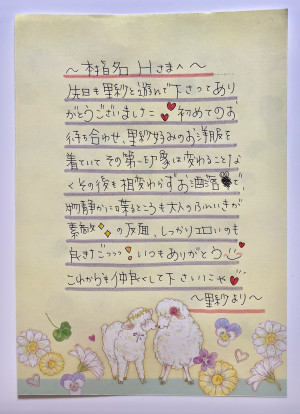 ～本指名 Hさまへ～
先日も里紗と遊んで下さってあり
がとうございました❤初めてのお
待ち合わせ、里紗好みのお洋服を
着ていてその第一印象は変わることな
くその後も相変わらずお洒落で、
物静かに喋るところも大人の雰囲気が
素敵✨の反面、しっかりエロいのも
良きごっっっ！いつもありがとう
これからも仲良くして下さいにゃ❤
～里紗より～